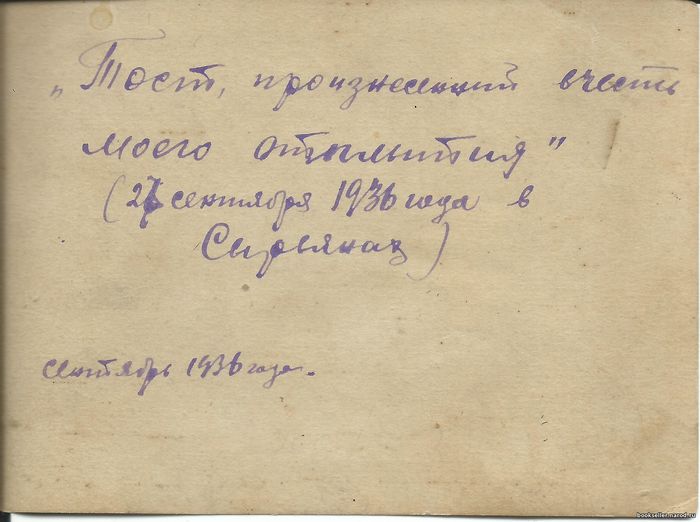 „Тост, произнесенный в честь
моего отплытия"
(27 сентября 1936 года в
Сырьянах)
сентябрь 1936 года.
bookseller.narod.ru